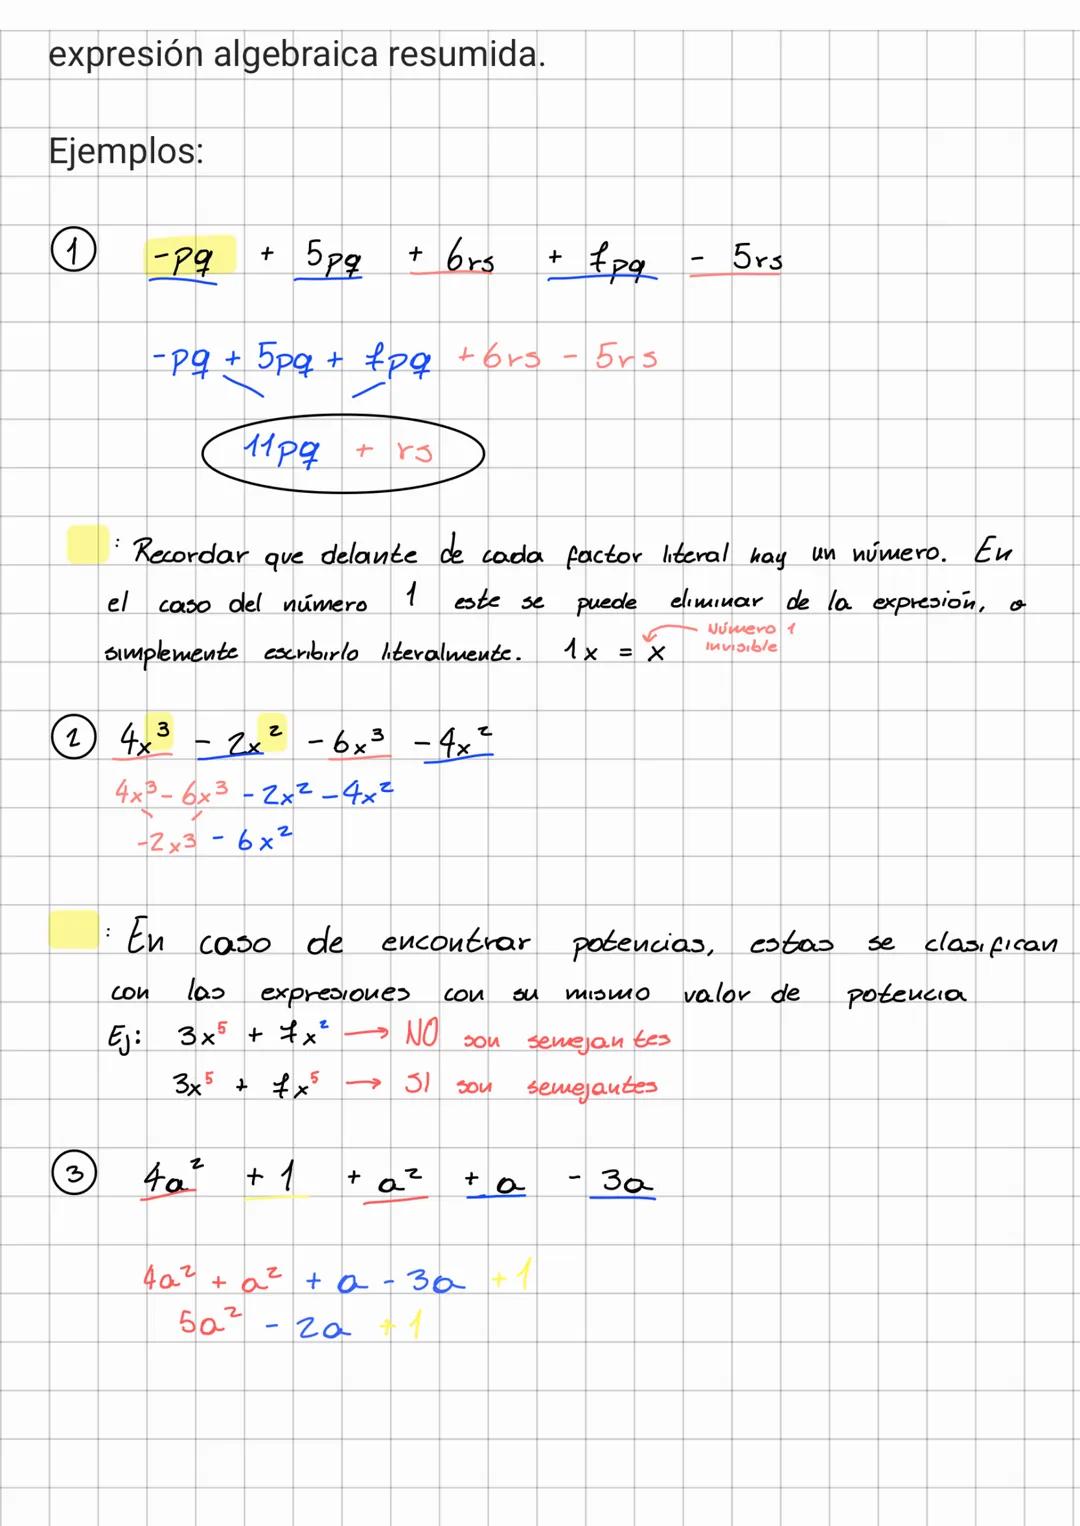 expresión algebraica resumida.
Ejemplos:
1 -pq + 5pq + 6rs + 7pq - 5rs
-pq + 5pq + 7pq + 6rs - 5rs
11pq + rs
: Recordar que delante de cada factor literal hay un número. En
el caso del número 1 este se puede eliminar de la expresión, o
simplemente escribirlo literalmente. 1x = x Número 1
invisible
2 4x³ - 2x² - 6x³ - 4x²
4x³ - 6x³ - 2x² - 4x²
-2x3 - 6x²
: En caso de encontrar potencias, estas se clasifican
con las expresiones con su mismo valor de potencia
Ej: 3x⁵ + 7x² → NO son semejantes
3x⁵ + 7x⁵ → SI son semejantes
3 4a² + 1 + a² + a - 3a
4a² + a² + a - 3a + 1
5a² - 2a + 1